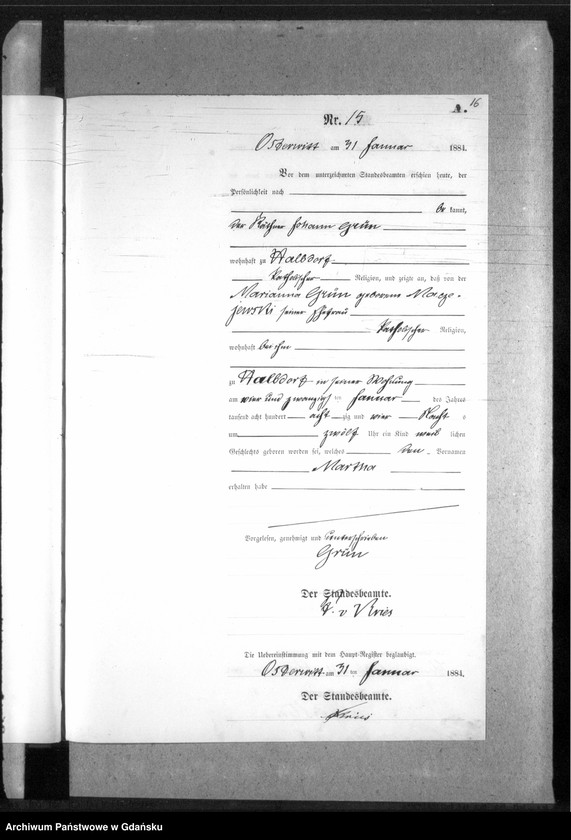 A. 16
Nr. 15
Osterwitt am 31 Januar 1884.
Vor dem unterzeichneten Standesbeamten erschien heute, der
Persönlichkeit nach
be kannt,
der Käthner Johann Grün
wohnhaft zu Halbdorf
katholischer Religion, und zeigte an, daß von der
Marianna Grün geborene Macze-
jewski seiner Ehefrau
katholischer Religion,
wohnhaft bei ihm
zu Halbdorf in seiner Wohnung
am vier und zwanzigsten Januar des Jahres
tausend acht hundert acht zig und vier Nachts
um zwölf Uhr ein Kind weib lichen
Geschlechts geboren worden sei, welches den Vornamen
Martha
erhalten habe
Vorgelesen, genehmigt und unterschrieben
Grün
Der Standesbeamte.
v Kries
Die Uebereinstimmung mit dem Haupt-Register beglaubigt.
Osterwitt am 31 ten Januar 1884.
Der Standesbeamte.
Kries
Archiwum Państwowe w Gdańsku